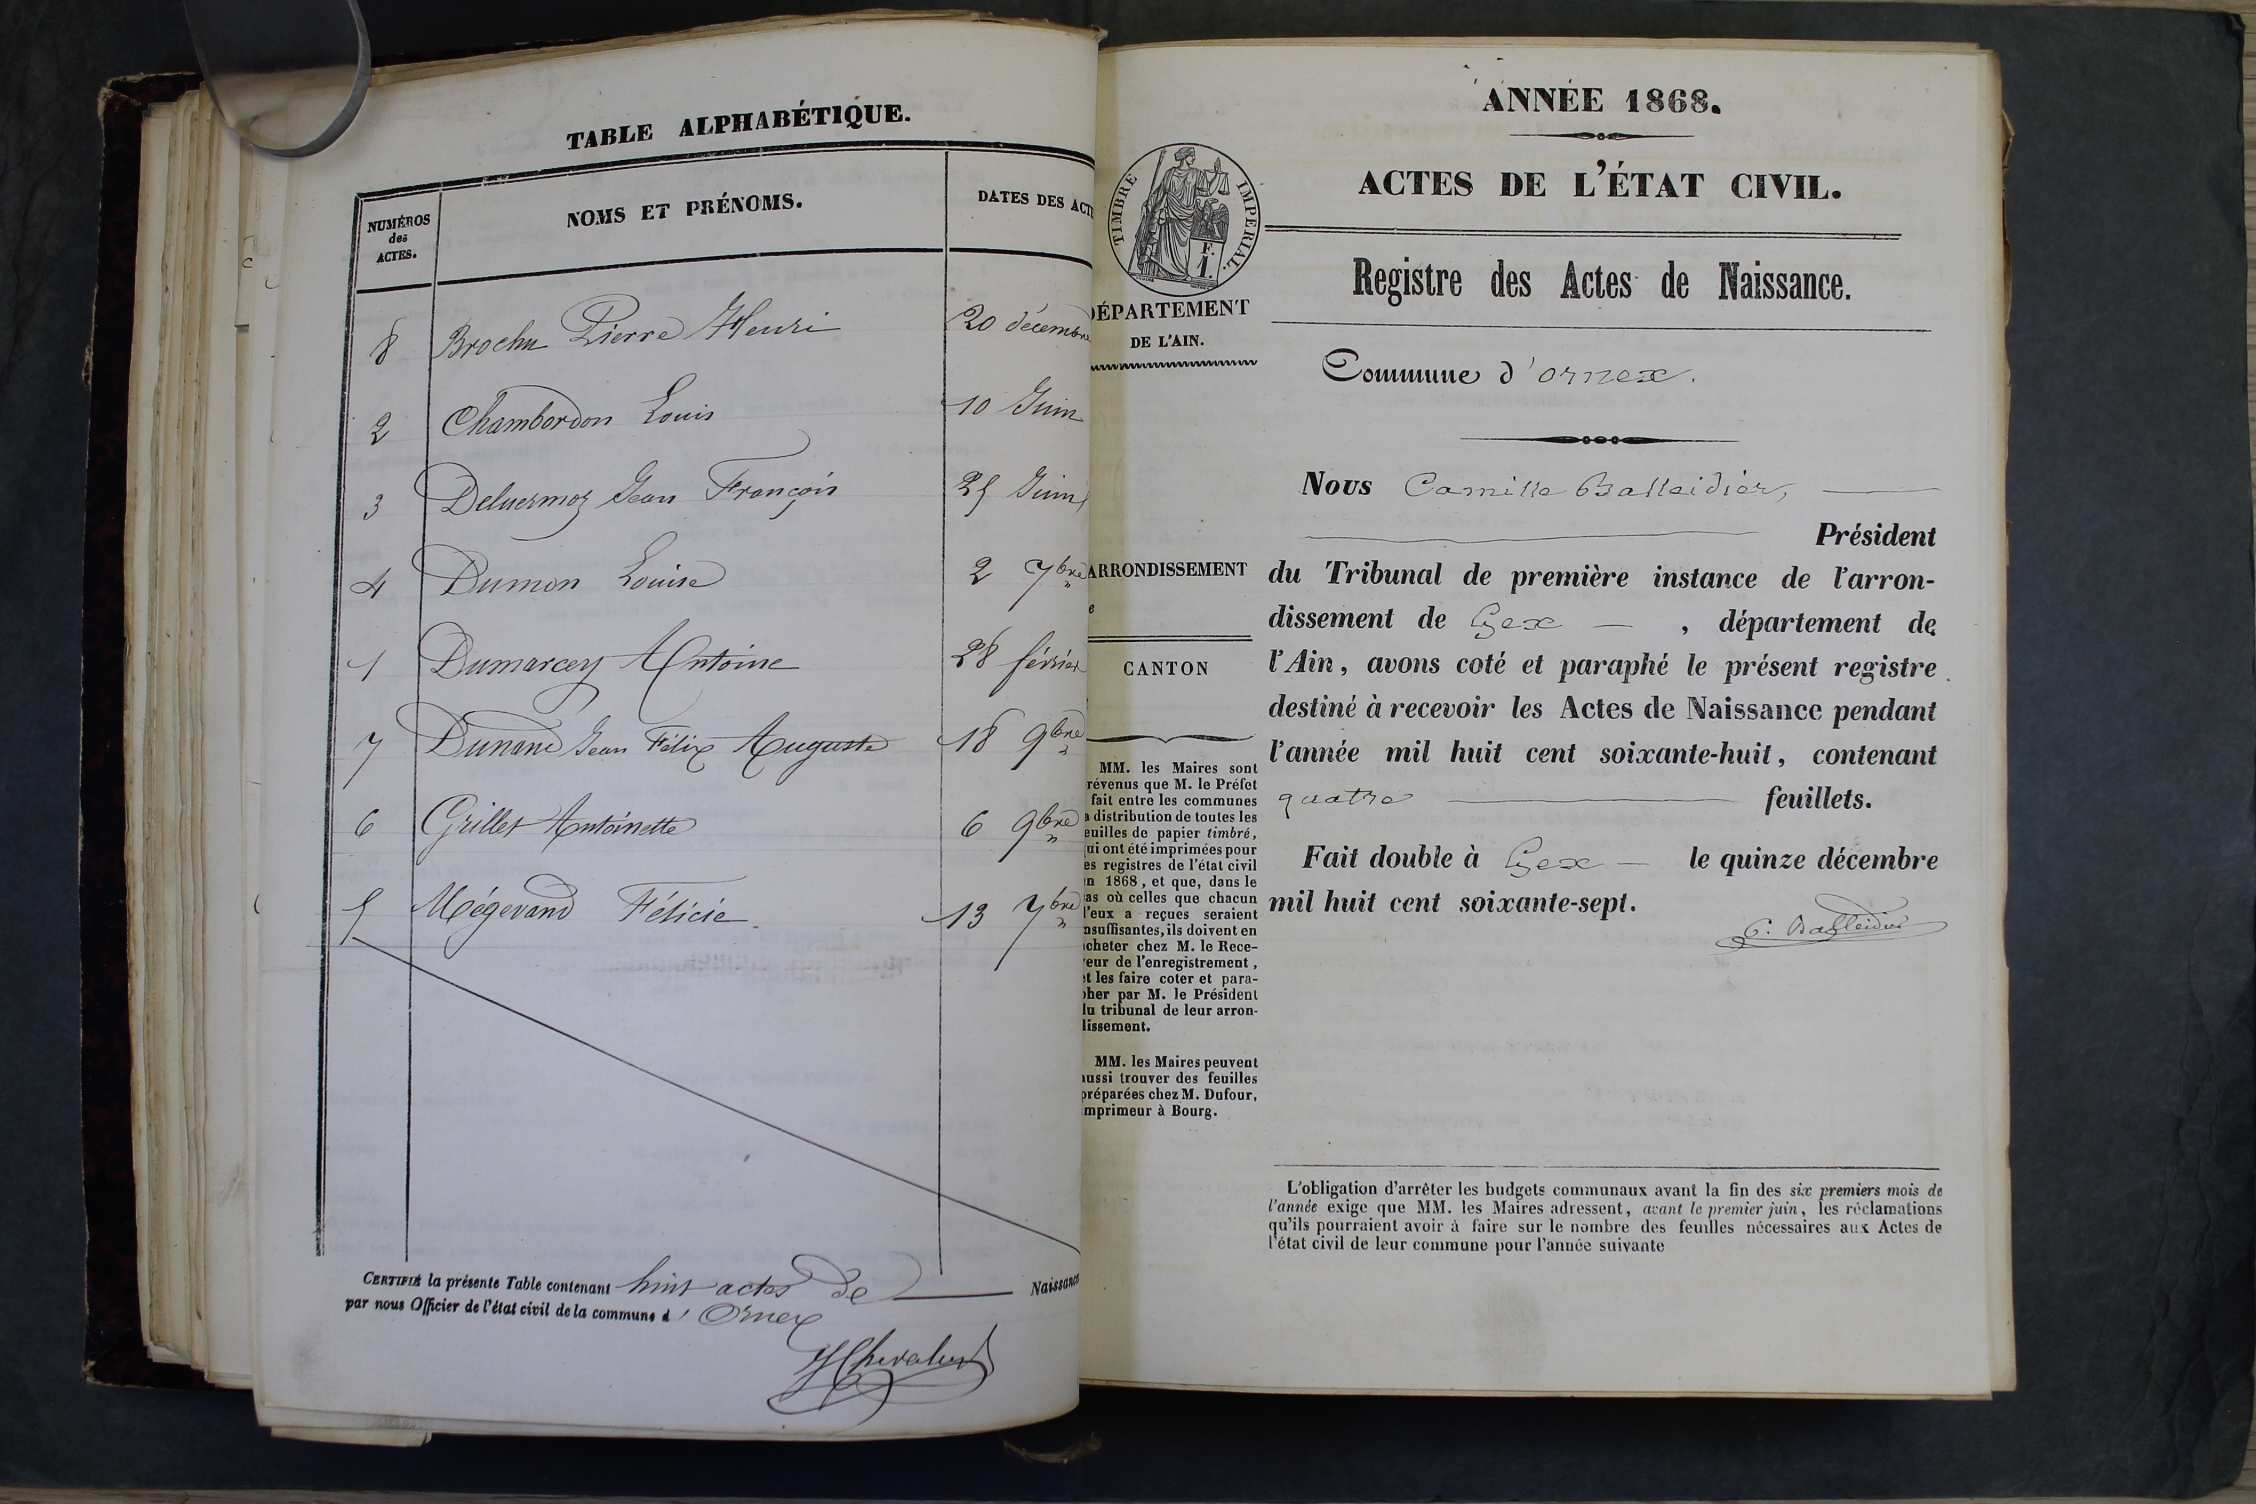 TABLE ALPHABÉTIQUE.
NUMÉROS
des
ACTES.
NOMS ET PRÉNOMS.
DATES DES ACT
8 Brochu Pierre Henri 20 décembre
2 Chambordon Louis 10 Juin
3 Deluermoz Jean François 25 Juin
4 Dumon Louise 2 7bre
1 Dumarcey Antoine 28 février
7 Dunand Jean Félix Auguste 18 9bre
6 Grillet Antoinette 6 9bre
5 Mégevand Félicie 13 7bre
CERTIFIÉ la présente Table contenant huit actes de Naissance
par nous Officier de l'état civil de la commune d' Ornex
TIMBRE IMPERIAL.
F.
1.
DÉPARTEMENT
DE L'AIN.
ARRONDISSEMENT
e
CANTON
MM. les Maires sont
révenus que M. le Préfet
fait entre les communes
a distribution de toutes les
euilles de papier timbré,
ui ont été imprimées pour
es registres de l'état civil
n 1868, et que, dans le
as où celles que chacun
l'eux a reçues seraient
nsuffisantes, ils doivent en
cheter chez M. le Rece-
eur de l'enregistrement,
et les faire coter et para-
pher par M. le Président
lu tribunal de leur arron-
lissement.
MM. les Maires peuvent
aussi trouver des feuilles
préparées chez M. Dufour,
mprimeur à Bourg.
ANNÉE 1868.
ACTES DE L'ÉTAT CIVIL.
Registre des Actes de Naissance.
Commune d'ornex.
Nous Camille Balleidier,
Président
du Tribunal de première instance de l'arron-
dissement de Gex , département de
l'Ain, avons coté et paraphé le présent registre
destiné à recevoir les Actes de Naissance pendant
l'année mil huit cent soixante-huit, contenant
quatre feuillets.
Fait double à Gex le quinze décembre
mil huit cent soixante-sept.
C. Balleidier
L'obligation d'arrêter les budgets communaux avant la fin des six premiers mois de
l'année exige que MM. les Maires adressent, avant le premier juin, les réclamations
qu'ils pourraient avoir à faire sur le nombre des feuilles nécessaires aux Actes de
l'état civil de leur commune pour l'année suivante